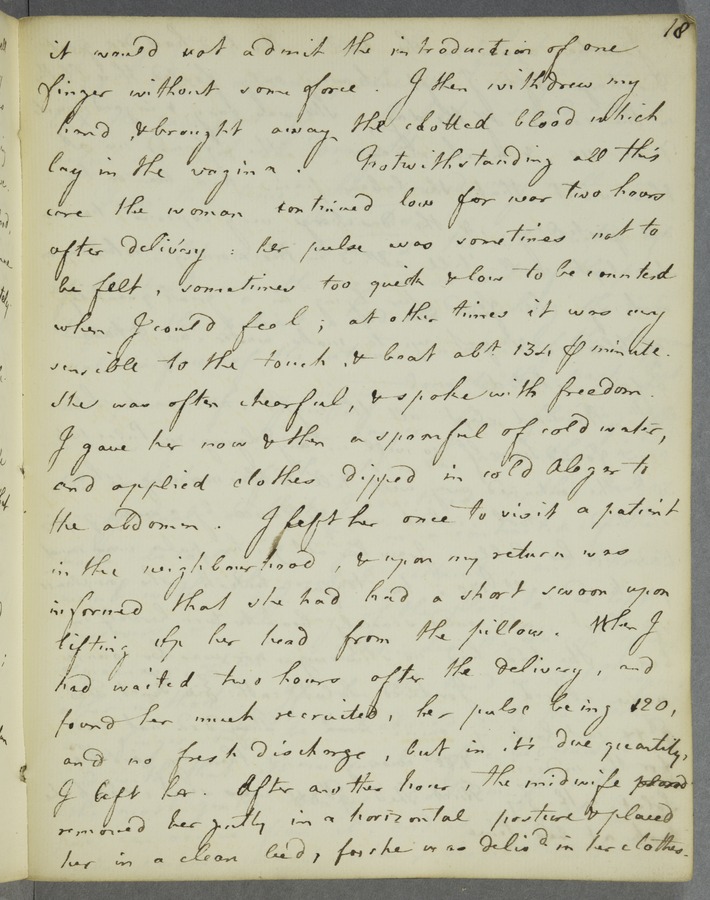 18
it would not admit the introduction of one
finger without some force. I then withdrew my
hand & brought away the clotted blood which
lay in the vagina. Notwithstanding all this
care the woman continued low for near two hours
after delivery: her pulse was sometimes not to
be felt, sometimes too quick & low to be counted
when I could feel; at other times it was very
sensible to the touch, & beat abt. 134 ⅌ minute.
She was often chearful, & spoke with freedom.
I gave her now & then a spoonful of cold water,
and applied clothes dipped in cold Alegar to
the abdomen. I left her once to visit a patient
in the neighbourhood, & upon my return was
informed that she had had a short swoon upon
lifting up her head from the pillow. When I
had waited two hours after the delivery, and
found her much recruited, her pulse being 120,
and no fresh discharge, but in it's due quantity,
I left her. After another hour, the midwife placed
removed her gently in a horizontal posture & placed
her in a clean bed, for she was delivd in her clothes.